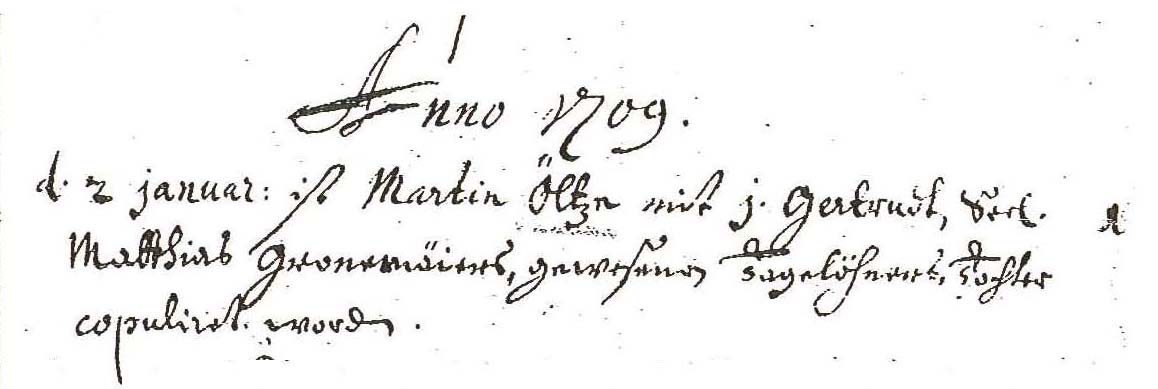 Anno 1709.
d. 2 januar: ist Martin Öltze mit j. Gertrudt, Seel.
Matthias Gronemöiers, gewesenen Tagelöhners, Tochter
copuliret worden.